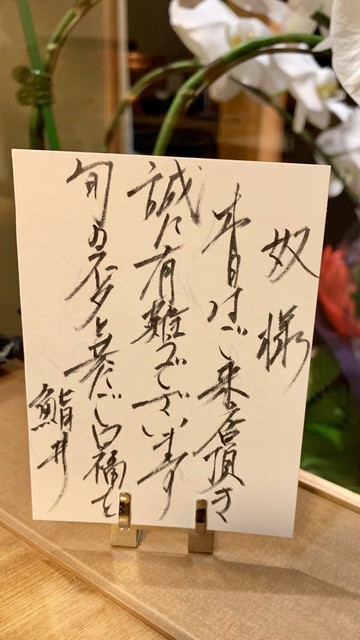 奴様
本日はご来店頂き
誠に有難うございます
旬の不夛と共にご口福を
鮨井